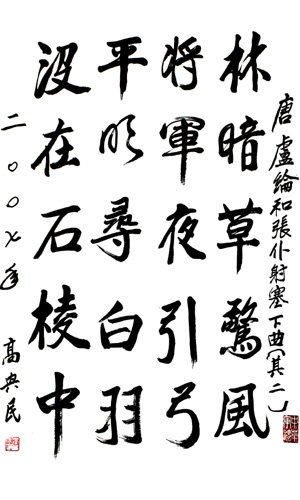 唐盧綸和張仆射塞下曲(其二)
林暗草驚風
將軍夜引弓
平明尋白羽
没在石棱中
二〇〇七年
高央民